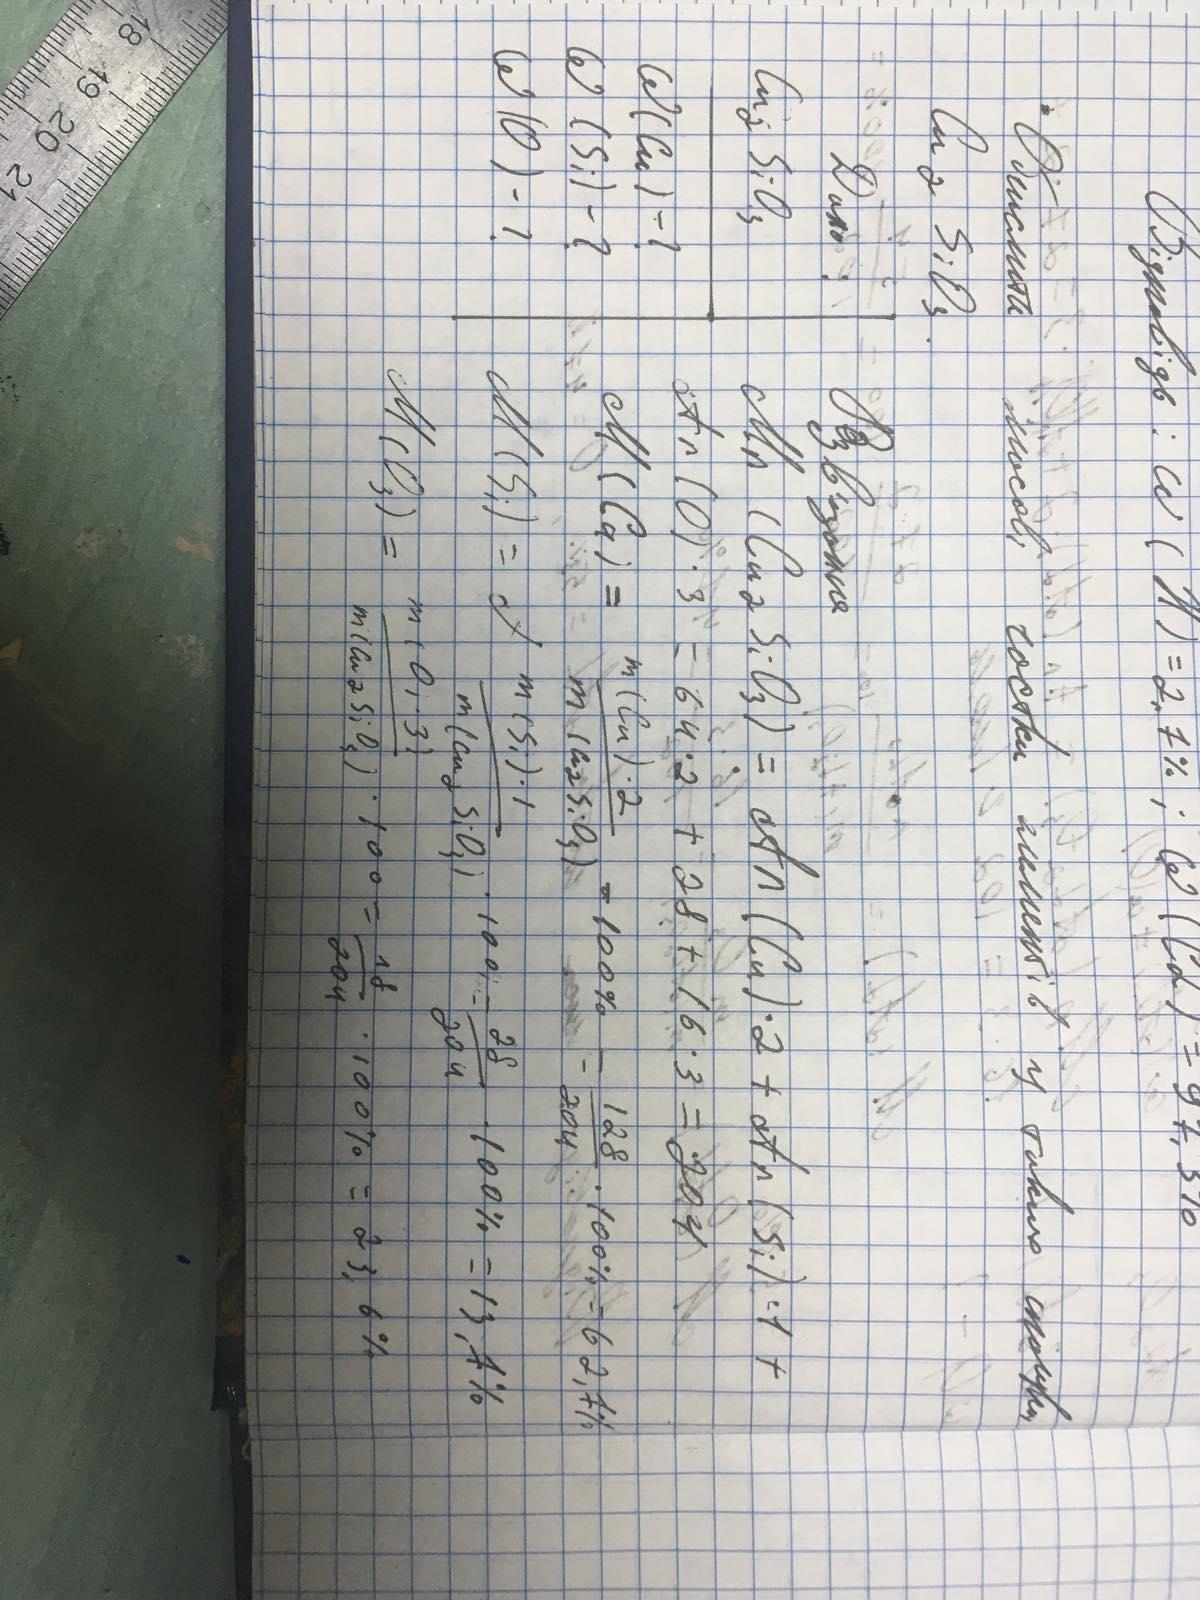 Відповідь: W(H)=2,7%; W(Cl)=97,3%
Обчислити масові частки елементів у таких сполуках
Cu2 SiO3.
Дано:
Cu2SiO3
W(Cu)-?
W(Si)-?
W(O)-?
Розв'язання
Mr (Cu2SiO3) = Ar(Cu)·2 + Ar(Si)·1 +
Ar(O)·3 = 64·2 + 28 + 16·3 = 204
M(Cu) = m(Cu)·2 / m(Cu2SiO3) · 100% = 128/204 · 100% = 62,7%
M(Si) = m(Si)·1 / m(Cu2SiO3) · 100 = 28/204 · 100% = 13,7%
M(O3) = m(O·3) / m(Cu2SiO3) · 100 = 48/204 · 100% = 23,6%
18 19 20 21